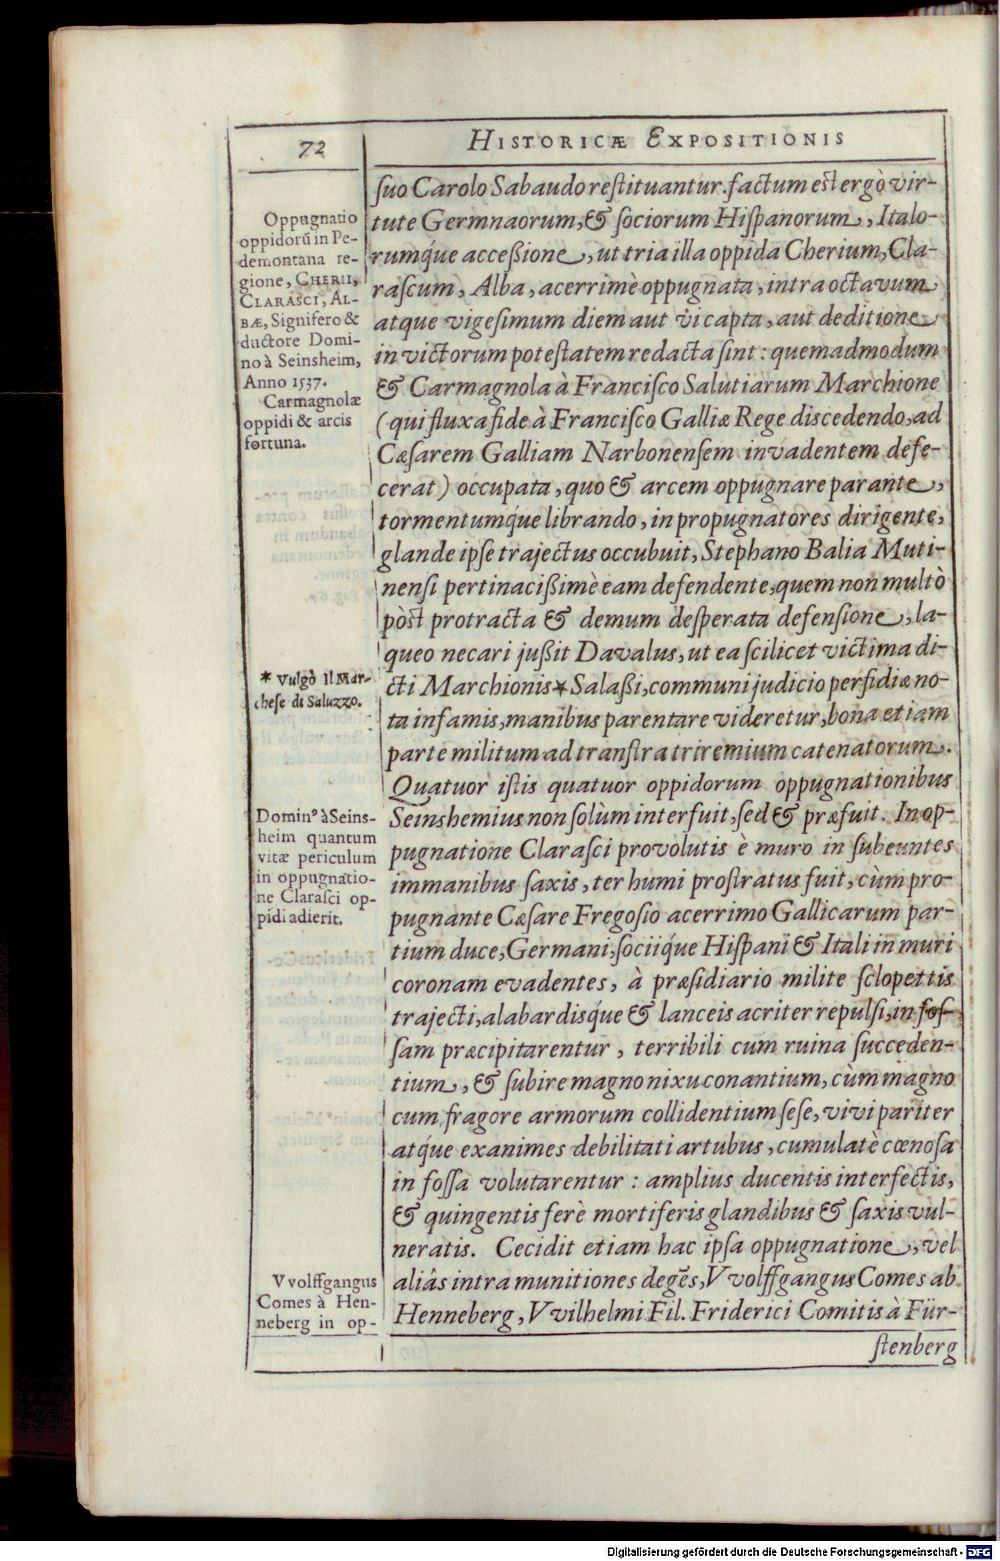 72
HISTORICÆ EXPOSITIONIS
ſuo Carolo Sabaudo reſtituantur. factum est ergò vir-
tute Germnaorum, & ſociorum Hiſpanorum, Italo-
rumq́ue acceßione, ut tria illa oppida Cherium, Cla-
raſcum, Alba, acerrimè oppugnata, intra octavum
atque vigeſimum diem aut vi capta, aut deditione
in victorum poteſtatem redacta ſint: quemadmodum
& Carmagnola à Franciſco Salutiarum Marchione
(qui fluxa fide à Franciſco Galliæ Rege discedendo, ad
Cæſarem Galliam Narbonenſem invadentem defe-
cerat) occupata, quo & arcem oppugnare parante,
tormentumq́ue librando, in propugnatores dirigente,
glande ipſe trajectus occubuit, Stephano Balia Muti-
nenſi pertinacißimè eam defendente, quem non multò
pòst protracta & demum deſperata defenſione, la-
queo necari jußit Davalus, ut ea ſcilicet victima di-
cti Marchionis * Salaßi, communi judicio perfidiæ no-
ta infamis, manibus parentare videretur, bona etiam
parte militum ad tranſtra triremium catenatorum.
Quatuor iſtis quatuor oppidorum oppugnationibus
Seinshemius non ſolùm interfuit, ſed & præfuit. In op-
pugnatione Claraſci provolutis è muro in ſubeuntes
immanibus ſaxis, ter humi proſtratus fuit, cùm pro-
pugnante Cæſare Fregoſio acerrimo Gallicarum par-
tium duce, Germani, ſociiq́ue Hiſpani & Itali in muri
coronam evadentes, à præſidiario milite ſclopettis
trajecti, alabardisq́ue & lanceis acriter repulſi, in foſ-
ſam præcipitarentur, terribili cum ruina ſucceden-
tium, & ſubire magno nixu conantium, cùm magno
cum fragore armorum collidentium ſeſe, vivi pariter
atq́ue exanimes debilitati artubus, cumulatè cœnoſa
in foſſa volutarentur: amplius ducentis interfectis,
& quingentis ferè mortiferis glandibus & ſaxis vul-
neratis. Cecidit etiam hac ipſa oppugnatione, vel
aliâs intra munitiones deges̃, VvolffgangusComes ab
Henneberg, Vvilhelmi Fil. Friderici Comitis à Für-
ſtenberg
Oppugnatio
oppidorũ in Pe-
demontana re-
gione, CHERII,
CLARASCI, AL-
BÆ, Signifero &
ductore Domi-
no à Seinsheim,
Anno 1537.
Carmagnolæ
oppidi & arcis
fortuna.
* Vulgò Il Mar-
cheſe di Saluzzo.
Domin⁹ à Seins-
heim quantum
vitæ periculum
in oppugnatio-
ne Claraſci op-
pidi adierit.
Vvolffgangus
Comes à Hen-
neberg in op-
Digitalisierung gefördert durch die Deutsche Forschungsgemeinschaft - DFG